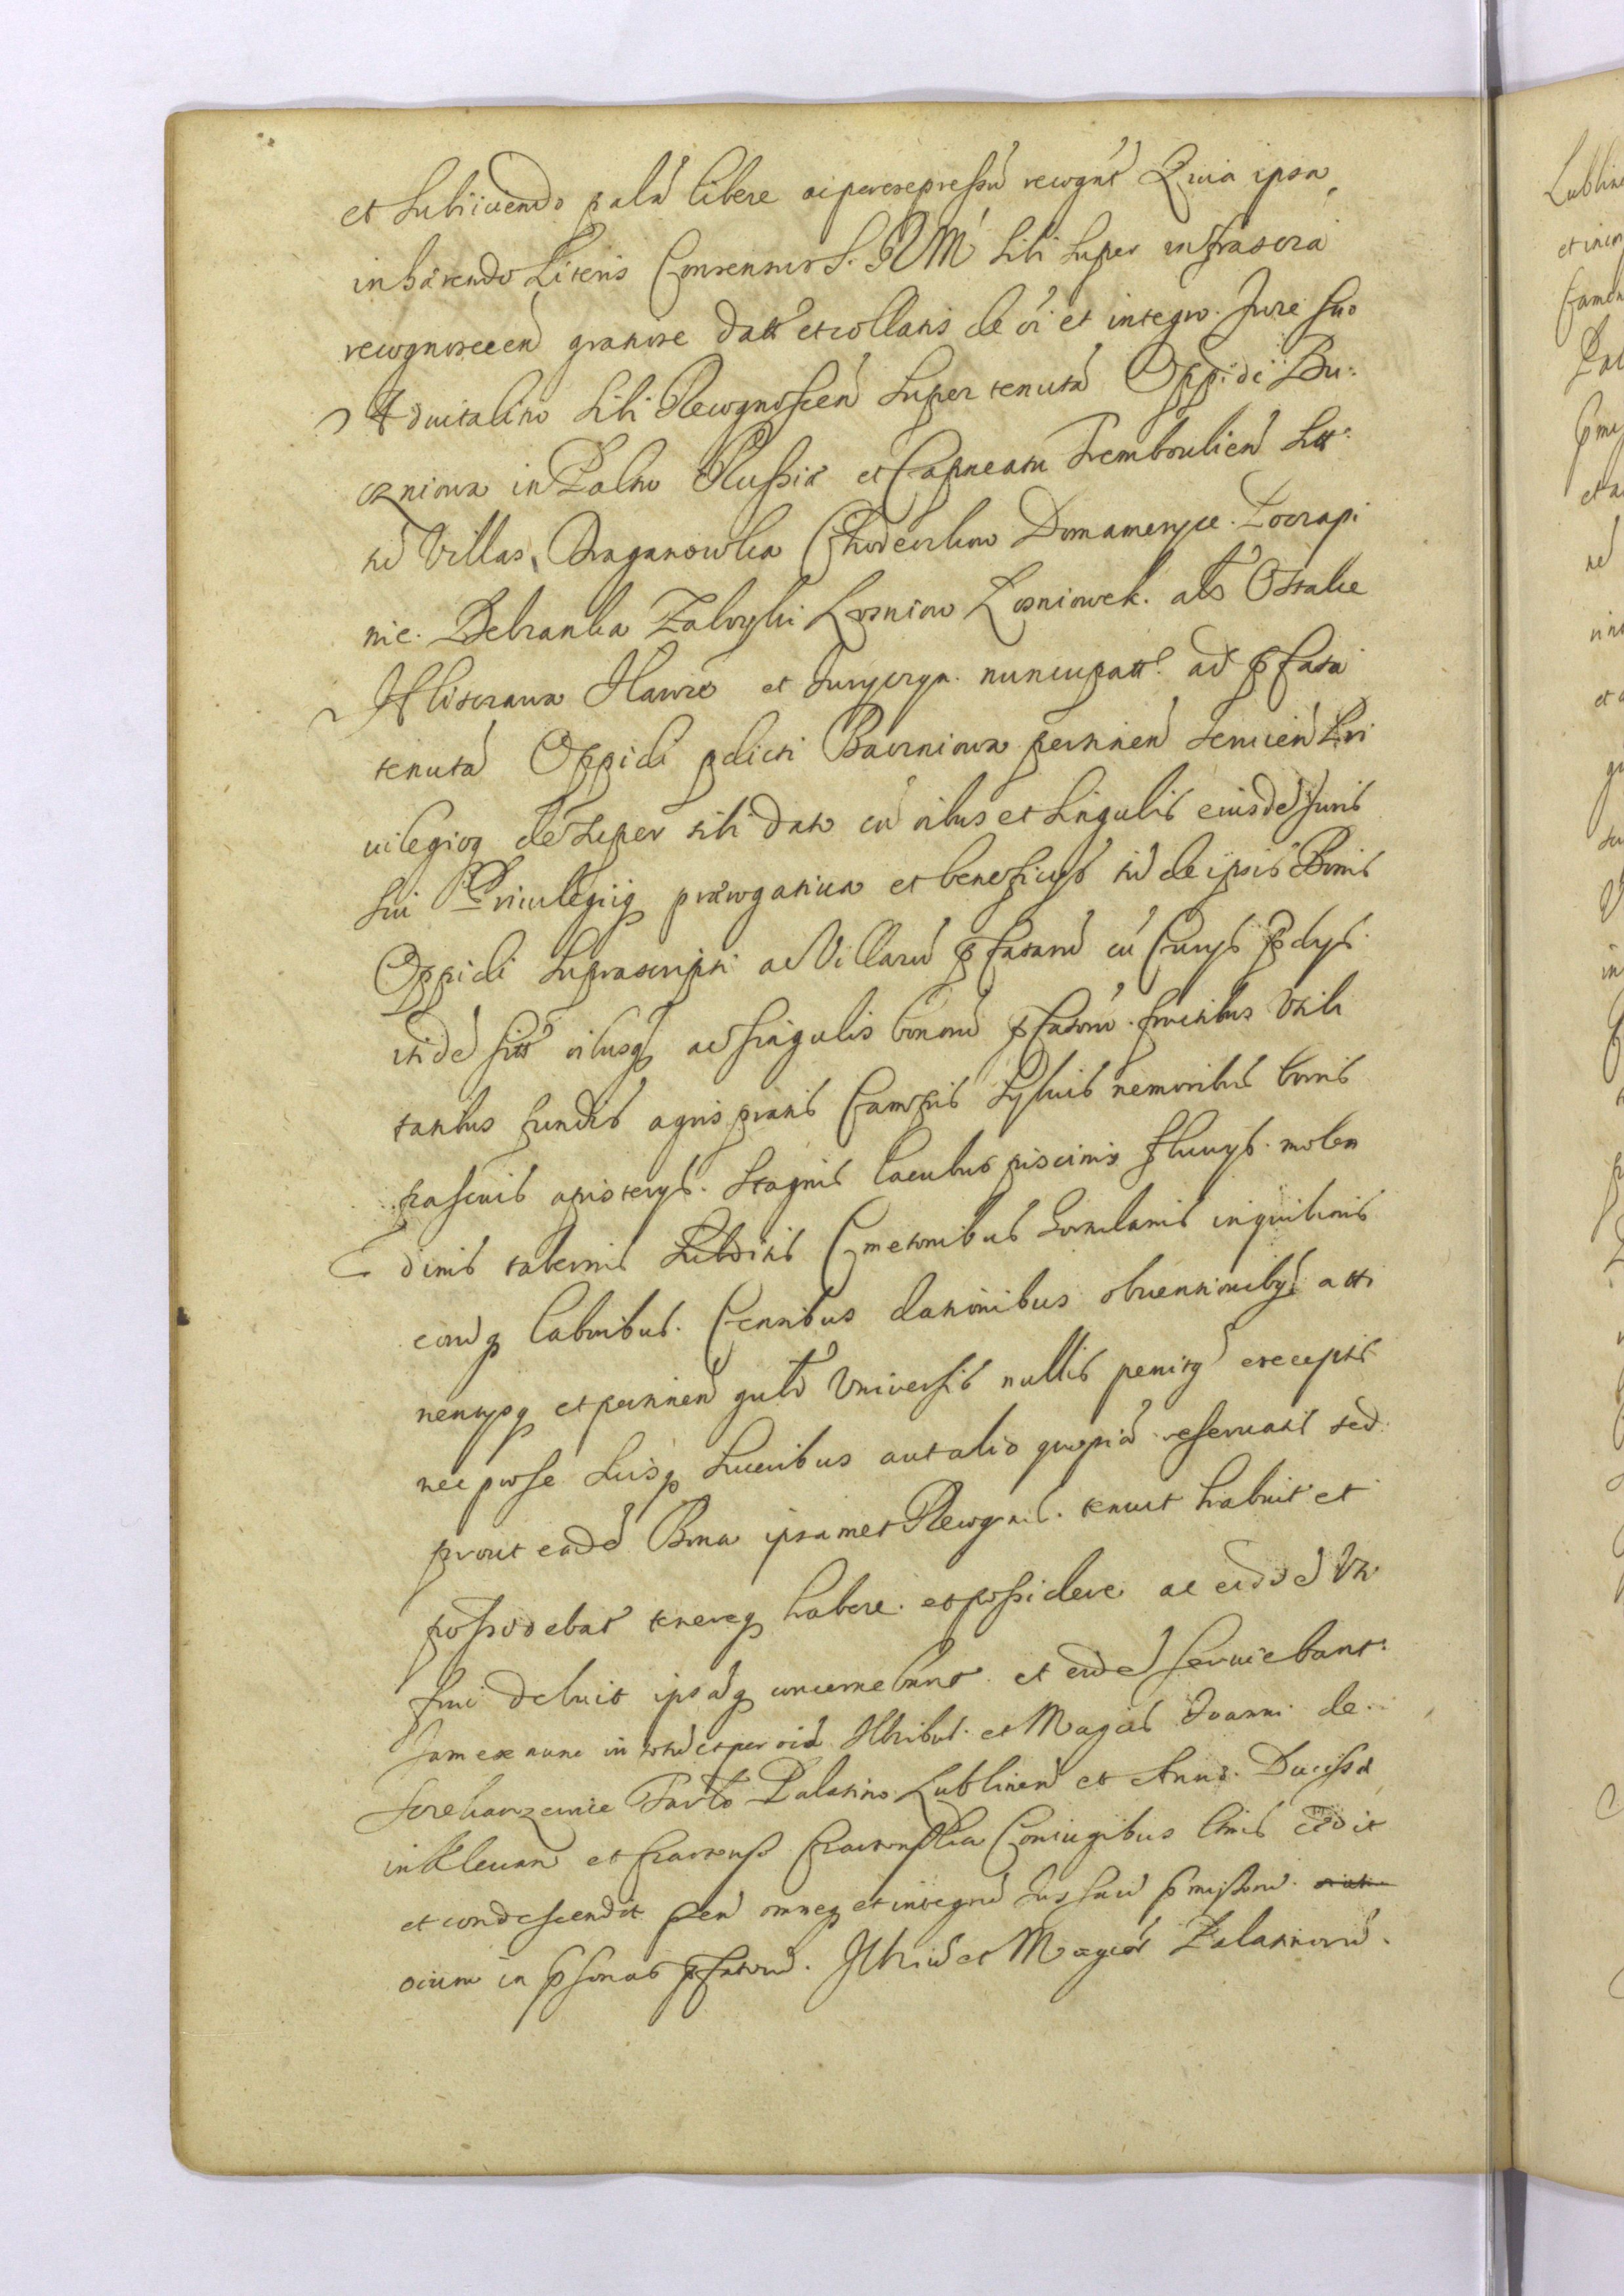 et subiiciendo palā libere ac per expressū recogn̄t Quia ipsa
inhærendo Literis Consensus S. R M sibi super infrascrā
recognoscen̄ gratiose datt et collatis de o͞i et integro Jure suo
Aduitalitio sibi Recognoscen̄ super tenutā Oppidi Bu:
czniowa in Paltu Russiæ et Capneatu Trembowlien̄ sitt:
tū Villas Draganowka Chodeczkow Domamerycze Poczapi
nie. Zebranka Zaboyki Lozniow Lozniowek. als Ostalce
Hliszczawa Hawcze et nuncupatt. ad p̄fata
tenutā Oppidi p̄dicti Baczniowa pertinen̄ seruien̄ Pri
uilegioq desuper sibi dato cū o͞ibus et singulis eiusdē Juris
sui Priuilegiiq prærogatiua et beneficijs tū de ipsis Bonis
Oppidi suprascripti ac Villarū p̄fatarū cū Curijs p̄dijs
ibidē sitt o͞ibusq ac singulis bonorū p̄fatorū fructibus Vtili
tatibus fundis agris pratis Campis Syluis nemoribus borris
pascuis apisterijs. Stagnis lacubus piscinis fluuijs. molen
dinis tabernis Subditis Cmetonibus hortulanis inquilinis
eorūq laboribus. Censibus dationibus obuentionibq atti
nentijsq et pertinen̄ Vniversis nullis penitq exceptis
nec pro se suisq succribus aut alio quopiā reseruatis sed
prout eadē Bona ipsamet Recogn̄s. tenuit habuit et
possidebat tenereq habere. et possidere ac eisdē Vti
frui debuit ipsāq concernebant et eidē seruiebant.
Jam ex nunc in totū et per o͞ia Illribus. et Magcis Joanni de
Szrekarzewice Tarło Palatino Lublinen̄ et Annæ. Ducissæ
in Klewan et Czartorysk Czartoryska Coniugibus cedit
et condescendit ten̄ omneq et integrū Jus suū p̄missorū.
o͞ium in p̄sonas p̄fatorū. Illriū et Magcor Palatinorū.